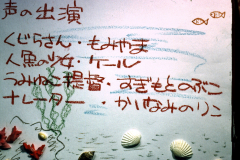 声の出演
くじらさん・もみやま
人魚の少女・ケール
うみねこ提督・すぎもとのぶこ
ナレーター・かいなみのりこ